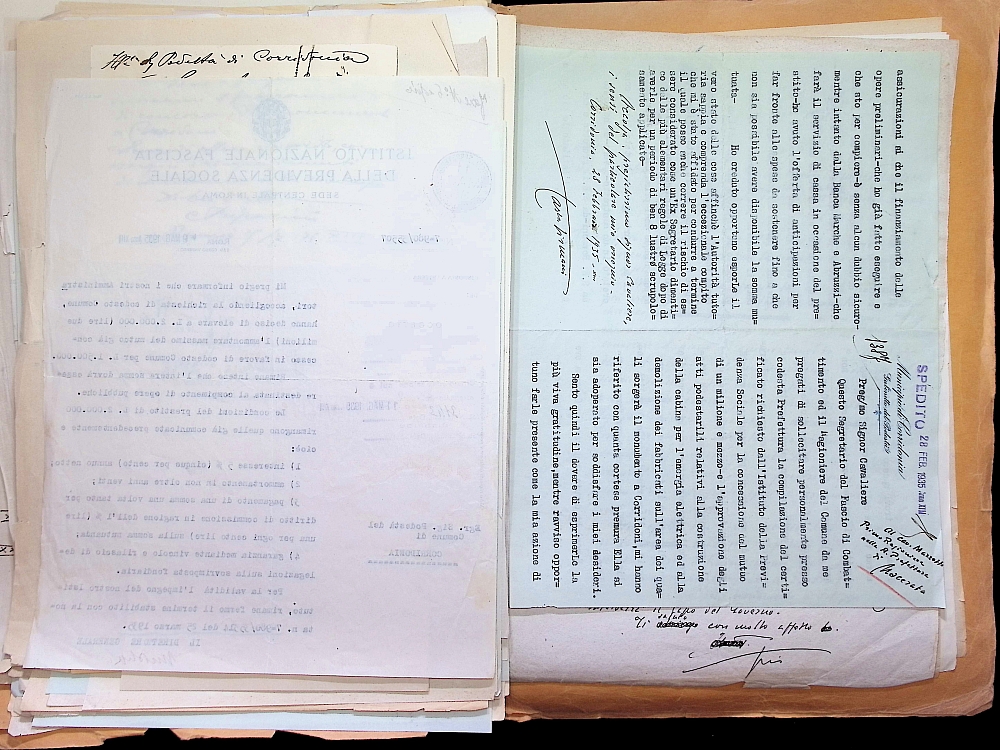 Podestà di Corridonia
ISTITUTO NAZIONALE FASCISTA
DELLA PREVIDENZA SOCIALE
SEDE CENTRALE IN ROMA
Mi pregio informare che i nostri Amministra
tori, accogliendo la richiesta di codesto Comune,
hanno deciso di elevare a L. 2.000.000 (lire due
milioni) l'ammontare massimo del mutuo già con-
cesso in favore di codesto Comune per L. 1.500.000.
Rimane inteso che l'intera somma dovrà esse-
re destinata al compimento di opere pubbliche.
Le condizioni del prestito di L. 2.000.000
rimangono quelle già comunicate precedentemente e
cioè:
1) interesse 5 % (cinque per cento) annuo netto;
2) ammortamento in non oltre anni venti;
3) pagamento di una somma una volta tanto per
diritto di commissione in ragione dell'1 % (lire
una per ogni cento lire) sulla somma mutuanda;
4) garanzia mediante vincolo e rilascio di de-
legazioni sulla sovrimposta fondiaria.
Per la validità l'impegno del nostro Isti-
tuto, rimane fermo il termine stabilito con la no-
ta n. del 25 marzo 1935
IL DIRETTORE GENERALE
Egr. Sig. Podestà del
Comune di
CORRIDONIA
SPEDITO 28 FEB. 1935 Anno XIII
Municipio di Corridonia
Gabinetto del Podestà
Al Cav. Marzetti
Primo Ragioniere
nella R. Prefettura
di
Macerata
Pregmo Signor Cavaliere
Questo Segretario del Fascio di Combat=
timento ed il Ragioniere del Comune da me
pregati di sollecitare personalmente presso
codesta Prefettura la compilazione del certi=
ficato richiesto dall'Istituto della Previ=
denza Sociale per la concessione del mutuo
di un milione e mezzo-e l'approvazione degli
atti podestarili relativi alla costruzione
della cabina per l'energia elettrica ed alla
demolizione dei fabbricati sull'area dei qua=
li sorgerà il monumento a Corridoni,mi hanno
riferito con quanta cortese premura Ella si
sia adoperato per soddisfare i miei desideri.
Sento quindi il dovere di esprimerle la
più viva gratitudine,mentre ravviso oppor=
tuno farle presente come la mia azione di
assicurazioni di che il finanziamento delle
opere preliminari-che ho già fatto eseguire e
che sto per compiere-è senza alcun dubbio sicuro-
mentre intento dalla Banca Marche e Abruzzi-che
farà il servizio di cassa in occasione del pre=
stito-ho avuto l'offerta di anticipazioni per
far fronte alle spese da sostenere fino a che
non sia possibile avere disponibile la somma mu=
tuata- Ho creduto opportuno esporle il
vero stato delle cose affinchè l'Autorità tuto=
ria sappia e comprenda l'eccezionale compito
che mi è stato affidato per condurre a termine
il quale posso anche correre il rischio di es=
sere considerato come un'Ex Segretario dimenti=
co delle più elementari regole di Legge dopo di
averle per un periodo di ben 8 lustri scrupolo=
samente applicate-
Accolga, pregiatissimo signor Cavaliere,
i sensi del particolare mio ossequio.
Corridonia, 28 Febbraio 1935 - XIII
del Governo.
Ti saluto con molto affetto